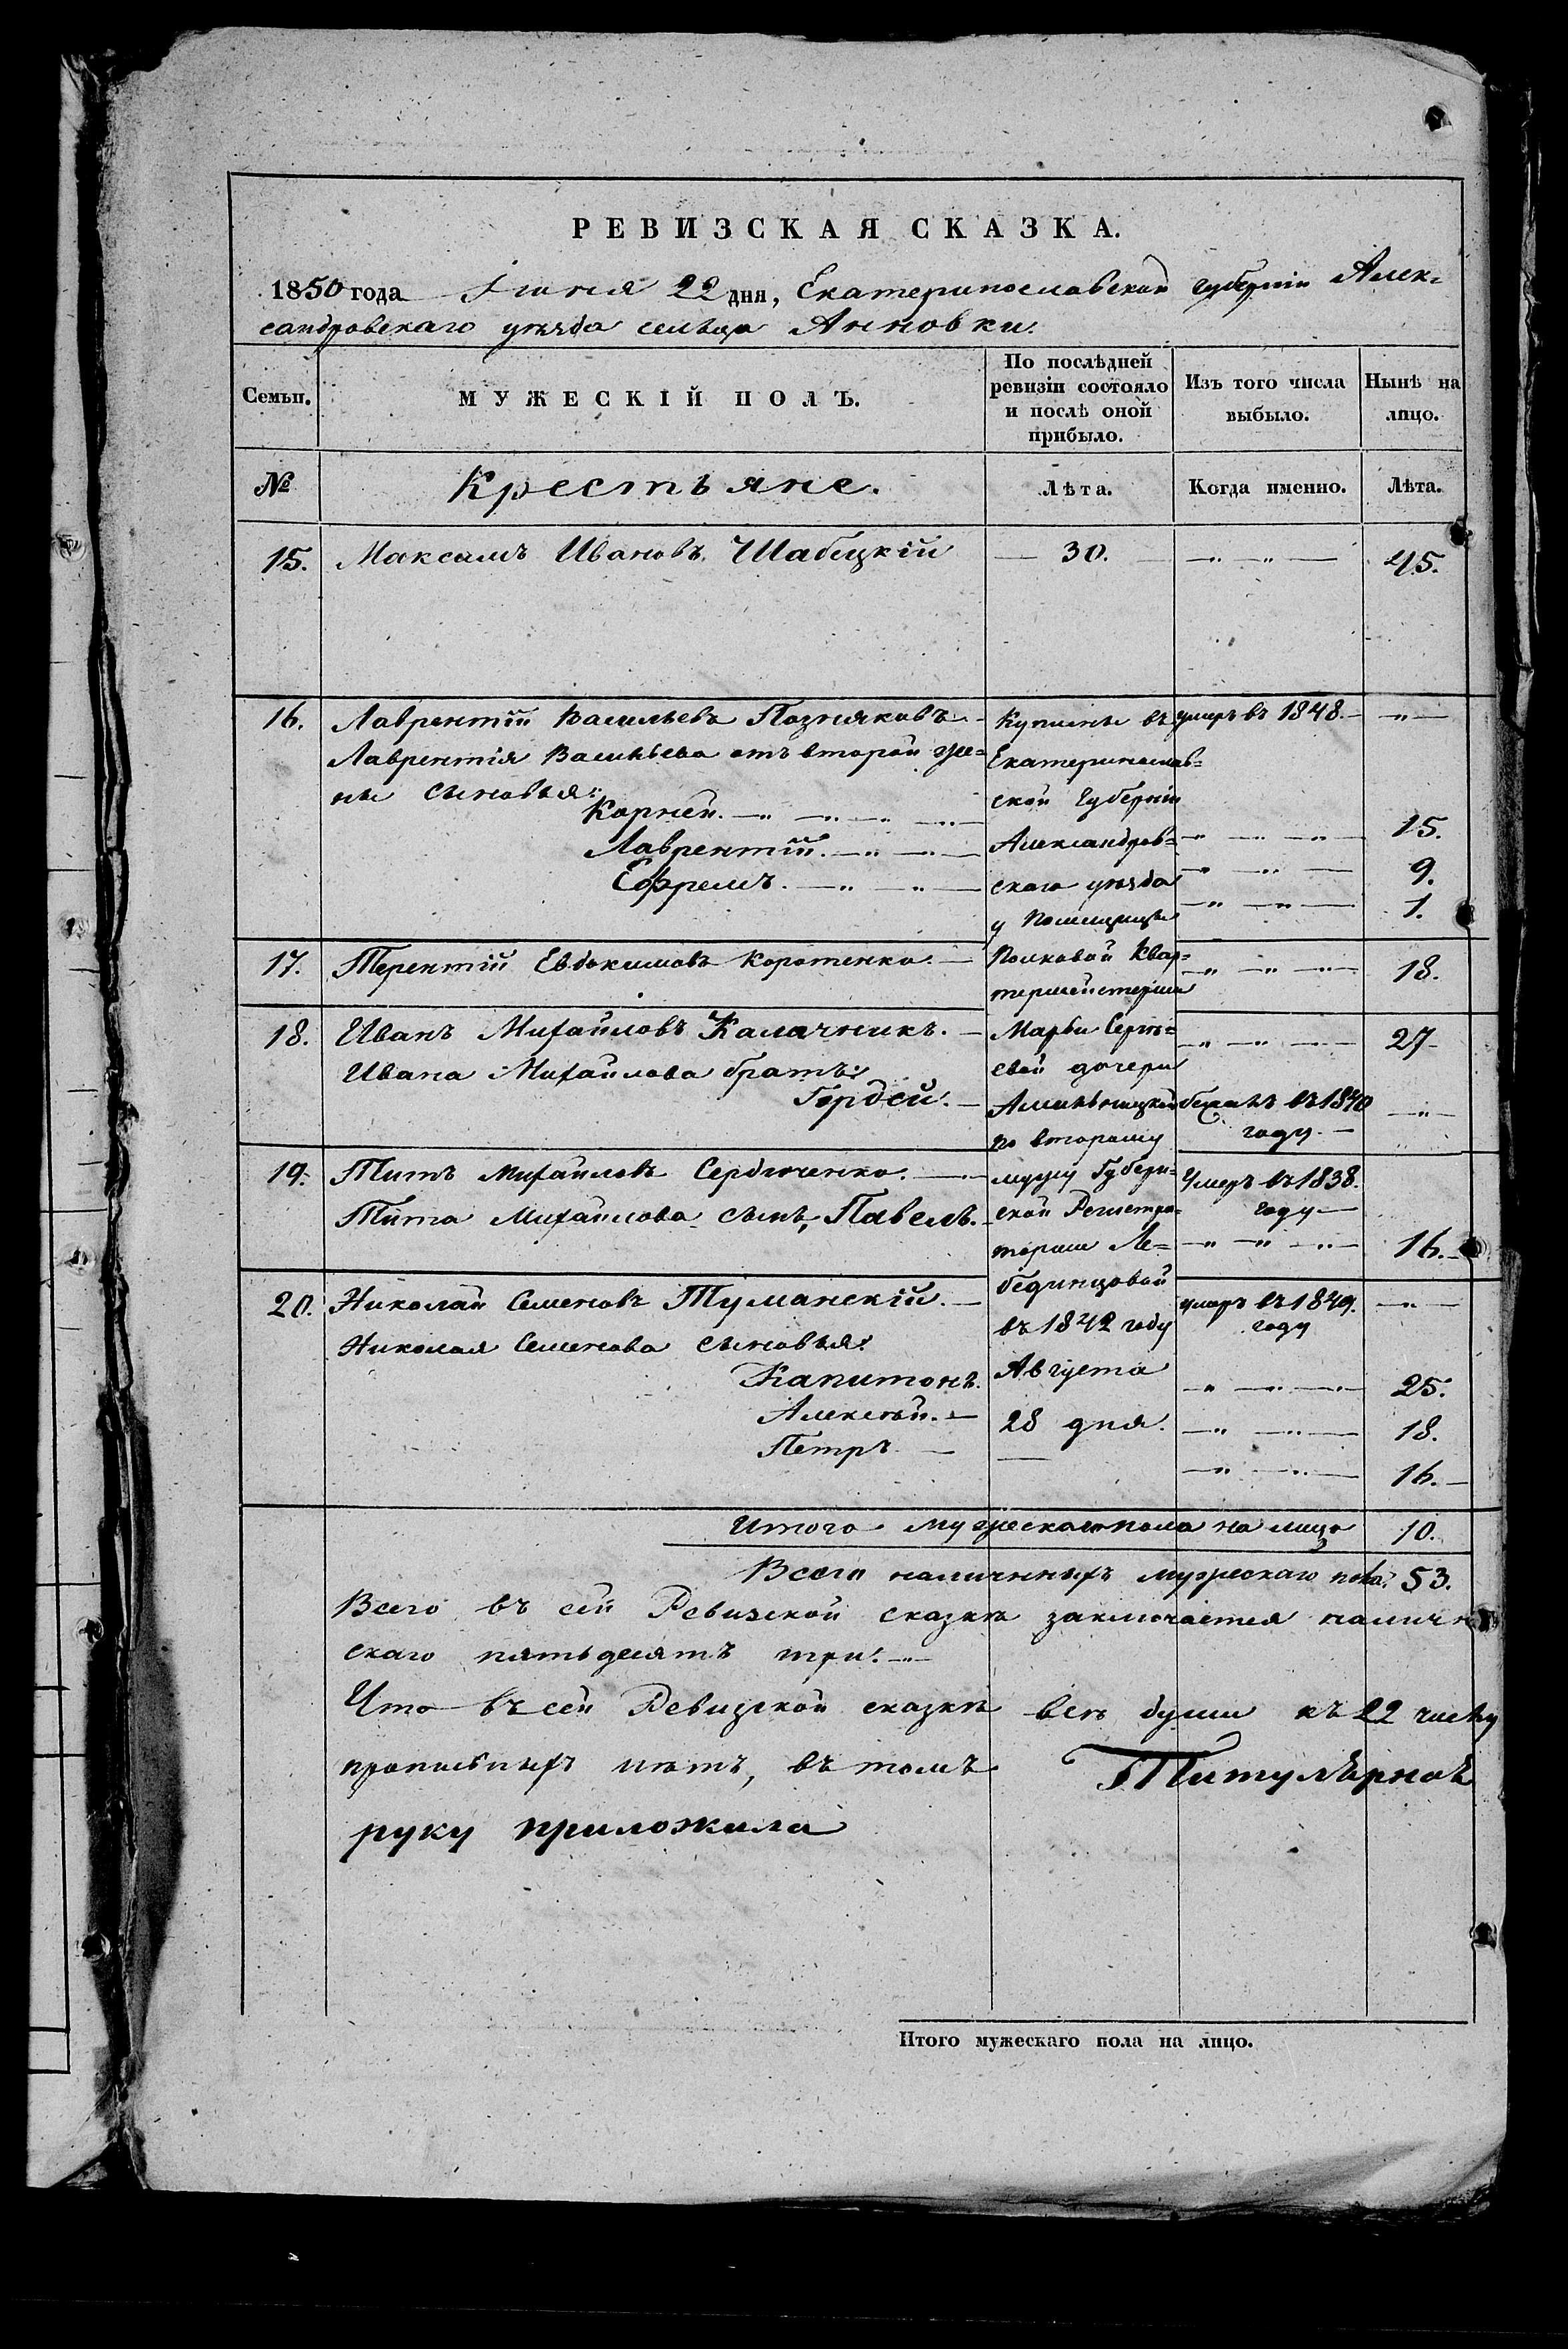 РЕВИЗСКАЯ СКАЗКА.
1850 года Іюня 22 дня, Екатеринославской губерніи Алек-
сандровскаго уѣзда сельца Анновки.
Семьи.
МУЖЕСКІЙ ПОЛЪ.
По послѣдней ревизіи состояло и послѣ оной прибыло.
Изъ того числа выбыло.
Нынѣ на лицо.
№ Крестьяне. Лѣта. Когда именно. Лѣта.
15. Максимъ Ивановъ Шабецкій — 30. — „ — „ — 45.
16. Лаврентій Васильевъ Позняковъ — умеръ въ 1848. — „ —
Лаврентія Васильева отъ второй же=
ны сыновья:
Корней. — „ — „ — „ — „ — 15.
Лаврентій. — „ — „ — 9.
Ефремъ. — „ — „ — 1.
17. Терентій Евдокимовъ Коротенко. — 18.
18. Иванъ Михайловъ Калачникъ. — 27
Ивана Михайлова братъ:
Гордей. — бежалъ въ 1840 году. — „ —
19. Титъ Михайловъ Сердюченко. — Умеръ въ 1838. году —
Тита Михайлова сынъ, Павелъ. — 16.
20. Николай Семеновъ Туманскій. — умеръ въ 1849. году — „ —
Николая Семенова сыновья:
Капитонъ. 25.
Алексѣй. — 18.
Петръ — 16.
Куплены въ
Екатеринослав=
ской Губерніи
Александров=
скаго уѣзда
у Помещицы
Полковой Квар=
термейстерши
Марьи Сергѣ=
евой дочери
по второму
мужу Губерн=
ской Регистра=
торши Ле=
бединцовой
въ 1842 году
Августа
28 дня.
Итого мужескаго пола на лицо 10.
Всего наличныхъ мужескаго пола. 53.
Всего въ сей Ревизской сказкѣ заключается наличн
скаго пятьдесятъ три. —
Что въ сей Ревизской сказкѣ всѣ души къ 22 числу
прописныхъ нѣтъ, въ томъ Титулярноъ
руку приложила
Итого мужескаго пола на лицо.